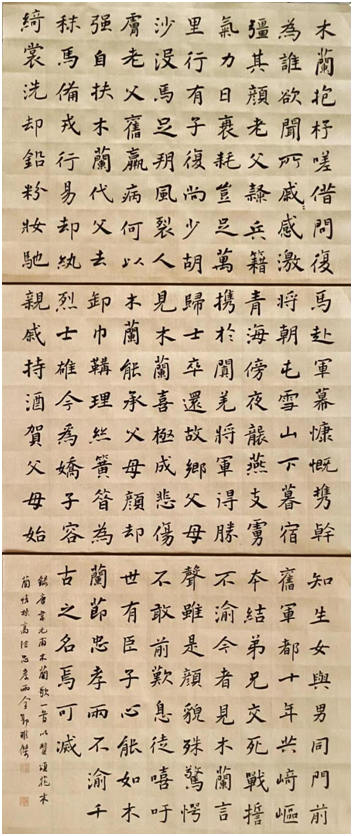 木蘭抱杼嗟借問復
為誰欲聞所慼感激
彊其顏老父隸兵籍
氣力日衰耗豈足萬
里行有子復尚少胡
沙没馬足朔風裂人
膚老父舊羸病何以
强自扶木蘭代父去
秣馬備戎行易却紈
綺裳洗却鉛粉妝馳
馬赴軍幕慷慨携幹
將朝屯雪山下暮宿
青海傍夜襲燕支虜
携於闐羌將軍得勝
歸士卒還故鄉父母
見木蘭喜極成悲傷
木蘭能承父母顏却
卸巾鞲理絲簧昔為
烈士雄今為嬌子容
親戚持酒賀父母始
知生女與男同門前
舊軍都十年共崎嶇
本結弟兄交死戰誓
不渝今者見木蘭言
聲雖是顏貌殊驚愕
不敢前歎息徒嘻吁
世有臣子心能如木
蘭節忠孝兩不渝千
古之名焉可滅
錄唐韋元甫木蘭歌一首以頌花木
蘭